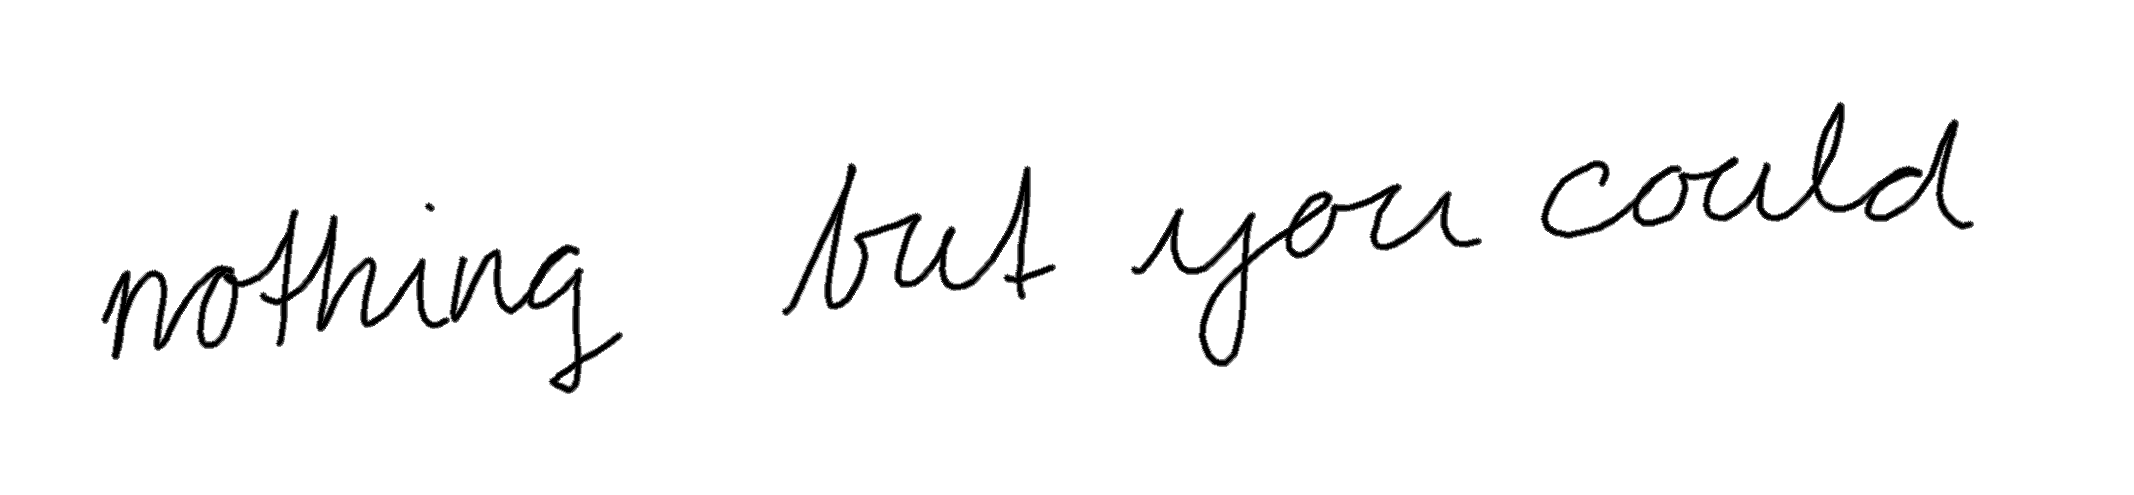 nothing but you could